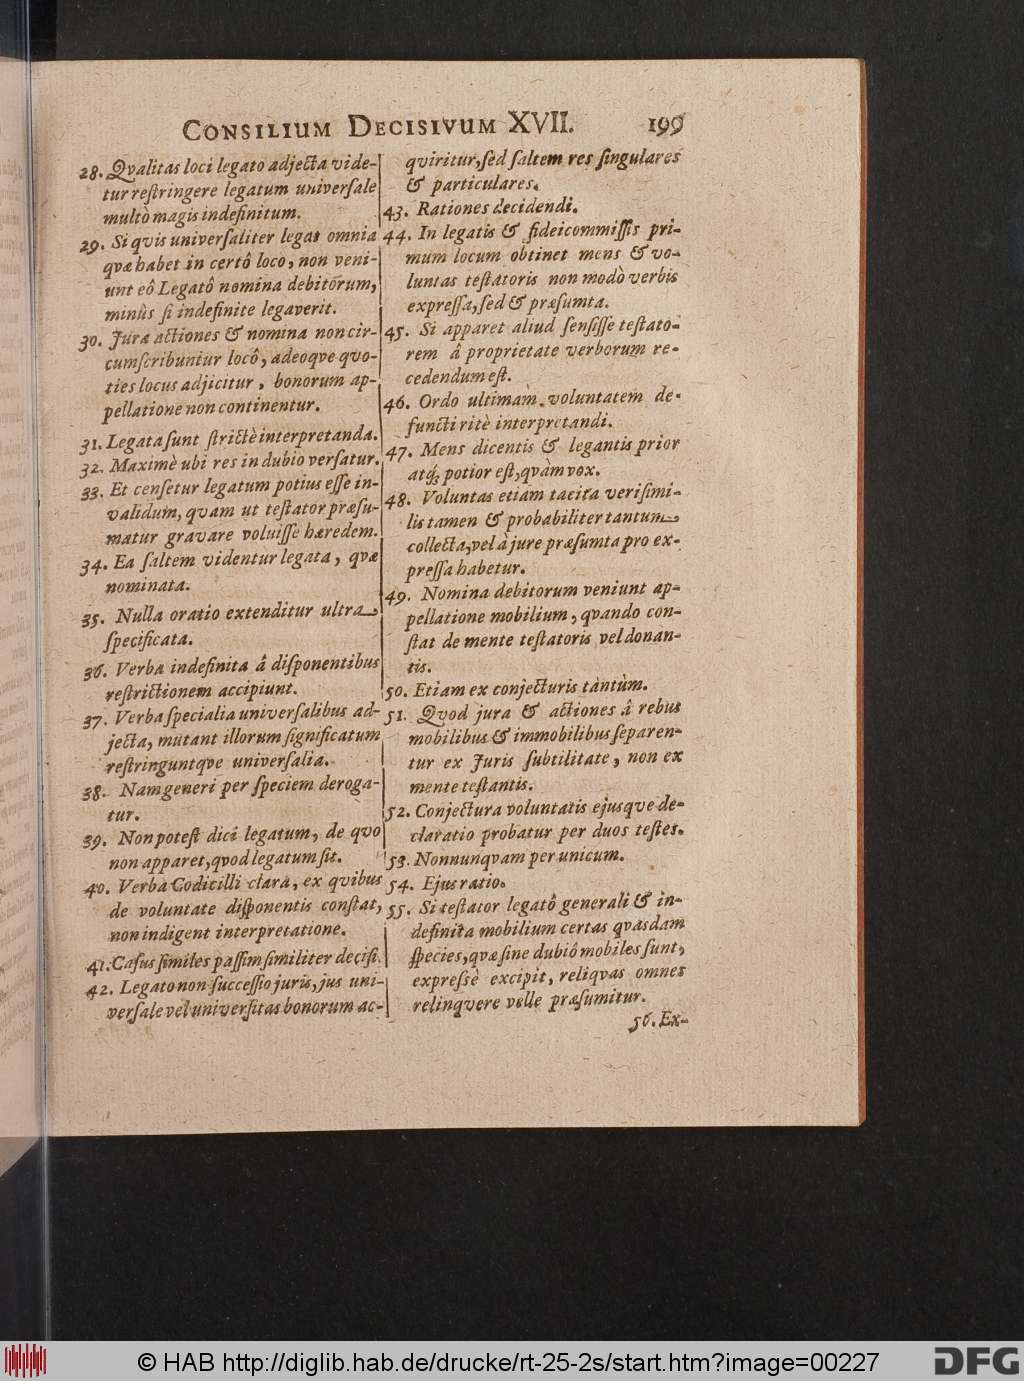 CONSILIUM DECISIVUM XVII. 199
28. Qvalitas loci legato adjecta vide-
tur reſtringere legatum univerſale
multò magis indefinitum.
29. Si quis univerſaliter legat omnia
qvæ habet in certô loco, non veni-
unt eô Legatô nomina debitorum,
minùs ſi indefinite legaverit.
30. Jura actiones & nomina non cir-
cumſcribuntur locô, adeoqve qvo-
ties locus adjicitur, bonorum ap-
pellatione non continentur.
31. Legata ſunt ſtrictè interpretanda.
32. Maximè ubi res in dubio verſatur.
33. Et cenſetur legatum potius eſſe in-
validum, qvam ut teſtator præſu-
matur gravare voluiſſe hæredem.
34. Ea ſaltem videntur legata, qvæ
nominata.
35. Nulla oratio extenditur ultra
ſpecificata.
36. Verba indefinita â diſponentibus
reſtrictionem accipiunt.
37. Verba ſpecialia univerſalibus ad-
jecta, mutant illorum ſignificatum
reſtringuntqve univerſalia.
38. Nam generi per ſpeciem deroga-
tur.
39. Non poteſt dici legatum, de qvo
non apparet, qvod legatum ſit.
40. Verba Codicilli clara, ex qvibus
de voluntate diſponentis conſtat,
non indigent interpretatione.
41. Caſus ſimiles paſſim ſimiliter deciſi.
42. Legato non ſucceſſio juris, jus uni-
verſale vel univerſitas bonorum ac-
qviritur, ſed ſaltem res ſingulares
& particulares.
43. Rationes decidendi.
44. In legatis & fideicommiſſis pri-
mum locum obtinet mens & vo-
luntas teſtatoris non modò verbis
expreſſa, ſed & præſumta.
45. Si apparet aliud ſenſiſſe teſtato-
rem â proprietate verborum re-
cedendum eſt.
46. Ordo ultimam voluntatem de-
functi ritè interpretandi.
47. Mens dicentis & legantis prior
atq; potior eſt, qvàm vox.
48. Voluntas etiam tacita veriſimi-
lis tamen & probabiliter tantum
collecta, vel à jure præſumta pro ex-
preſſa habetur.
49. Nomina debitorum veniunt ap-
pellatione mobilium, qvando con-
ſtat de mente teſtatoris vel donan-
tis.
50. Etiam ex conjecturis tantùm.
51. Qvod jura & actiones â rebus
mobilibus & immobilibus ſeparen-
tur ex Juris ſubtilitate, non ex
mente teſtantis.
52. Conjectura voluntatis ejusque de-
claratio probatur per duos teſtes.
53. Nonnunqvam per unicum.
54. Ejus ratio.
55. Si teſtator legatô generali & in-
definita mobilium certas qvasdam
ſpecies, qvæ ſine dubiô mobiles ſunt,
expreſsè excipit, reliqvas omnes
relinqvere velle præſumitur.
56. Ex-
© HAB http://diglib.hab.de/drucke/rt-25-2s/start.htm?image=00227
DFG